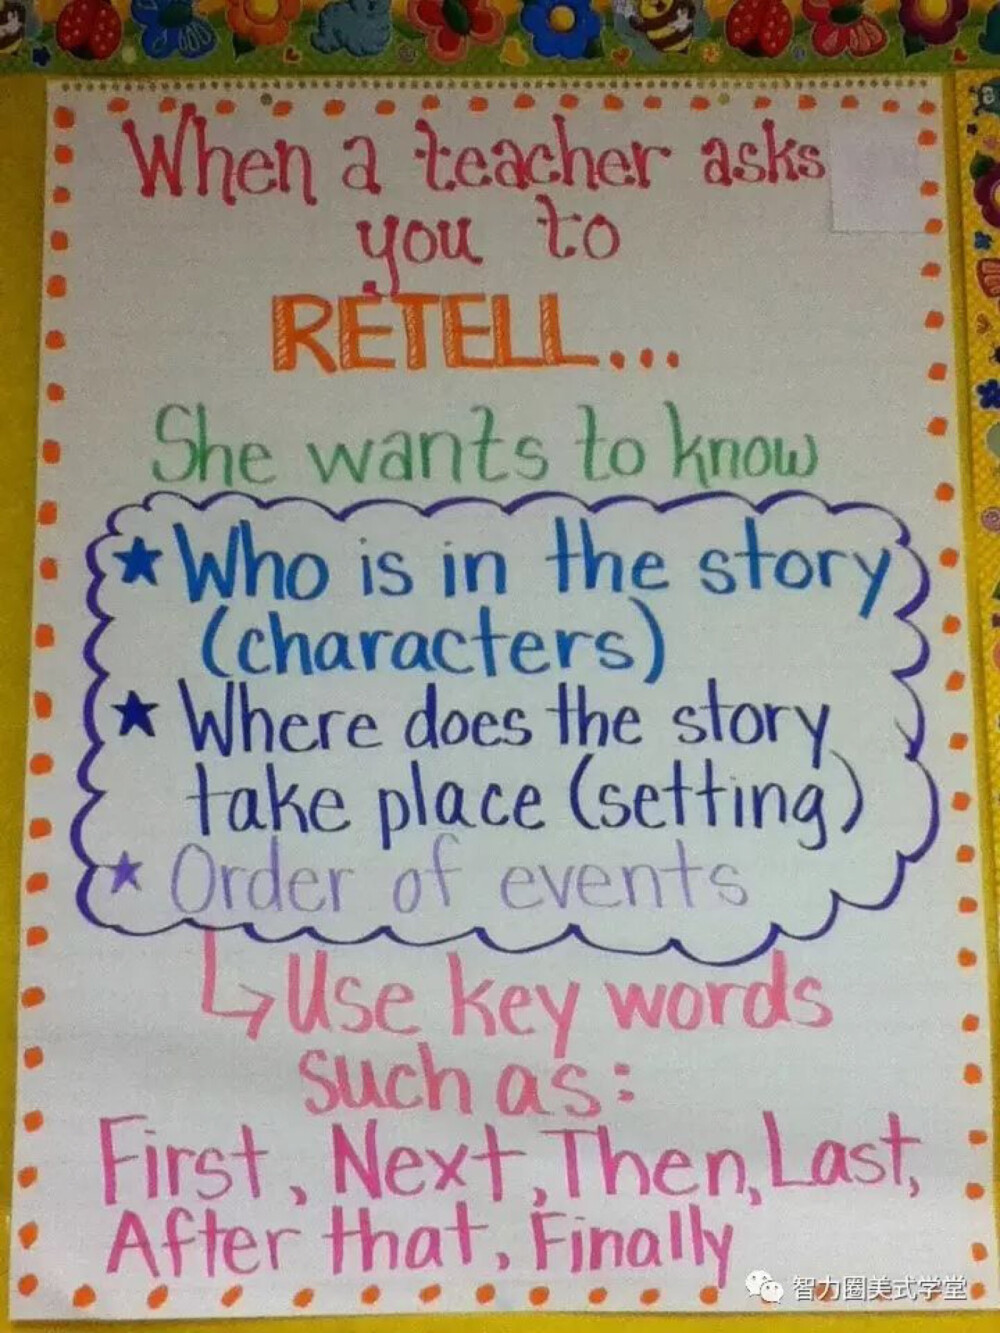 When a teacher asks
you to
RETELL...
She wants to know
★ Who is in the story
(characters)
★ Where does the story
take place (setting)
★ Order of events
↳ Use key words
such as:
First, Next, Then, Last,
After that, Finally
智力圈美式学堂